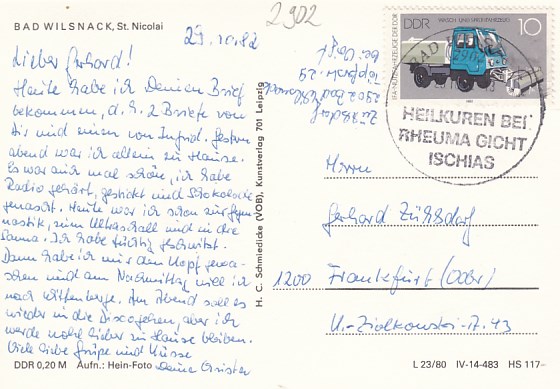 BAD WILSNACK, St. Nicolai
2902
29.10.82
Lieber Gerhard!
Heute habe ich Deinen Brief
bekommen, d.h. 2 Briefe von
Dir und einen von Ingrid. Gestern
abend war ich allein zu Hause.
Es war auch mal schön, ich habe
Radio gehört, gestickt und Schokolade
genascht. Heute war ich schon zur Gym-
nastik, zum Ultraschall und in die
Sauna. Ich habe tüchtig geschwitzt.
Dann habe ich mir den Kopf gewa-
schen und am Nachmittag will ich
nach Wittenberge. Am Abend soll es
wieder in die Disco gehen, aber ich
werde wohl lieber zu Hause bleiben.
Viele liebe Grüße und Küsse
Deine
DDR 0,20 M Aufn.: Hein-Foto
H. C. Schmiedicke (VOB), Kunstverlag 701 Leipzig
Zühlsdorf
2902 Bad Wilsnack
29
bei
DDR
WASCH- UND SPRÜHFAHRZEUG
10
IFA-NUTZFAHRZEUGE DER DDR
BAD
HEILKUREN BEI
RHEUMA GICHT
ISCHIAS
Herrn
Gerhard Zühlsdorf
1200 Frankfurt (Oder)
K.-Ziolkowski-A. 43
L 23/80 IV-14-483 HS 117